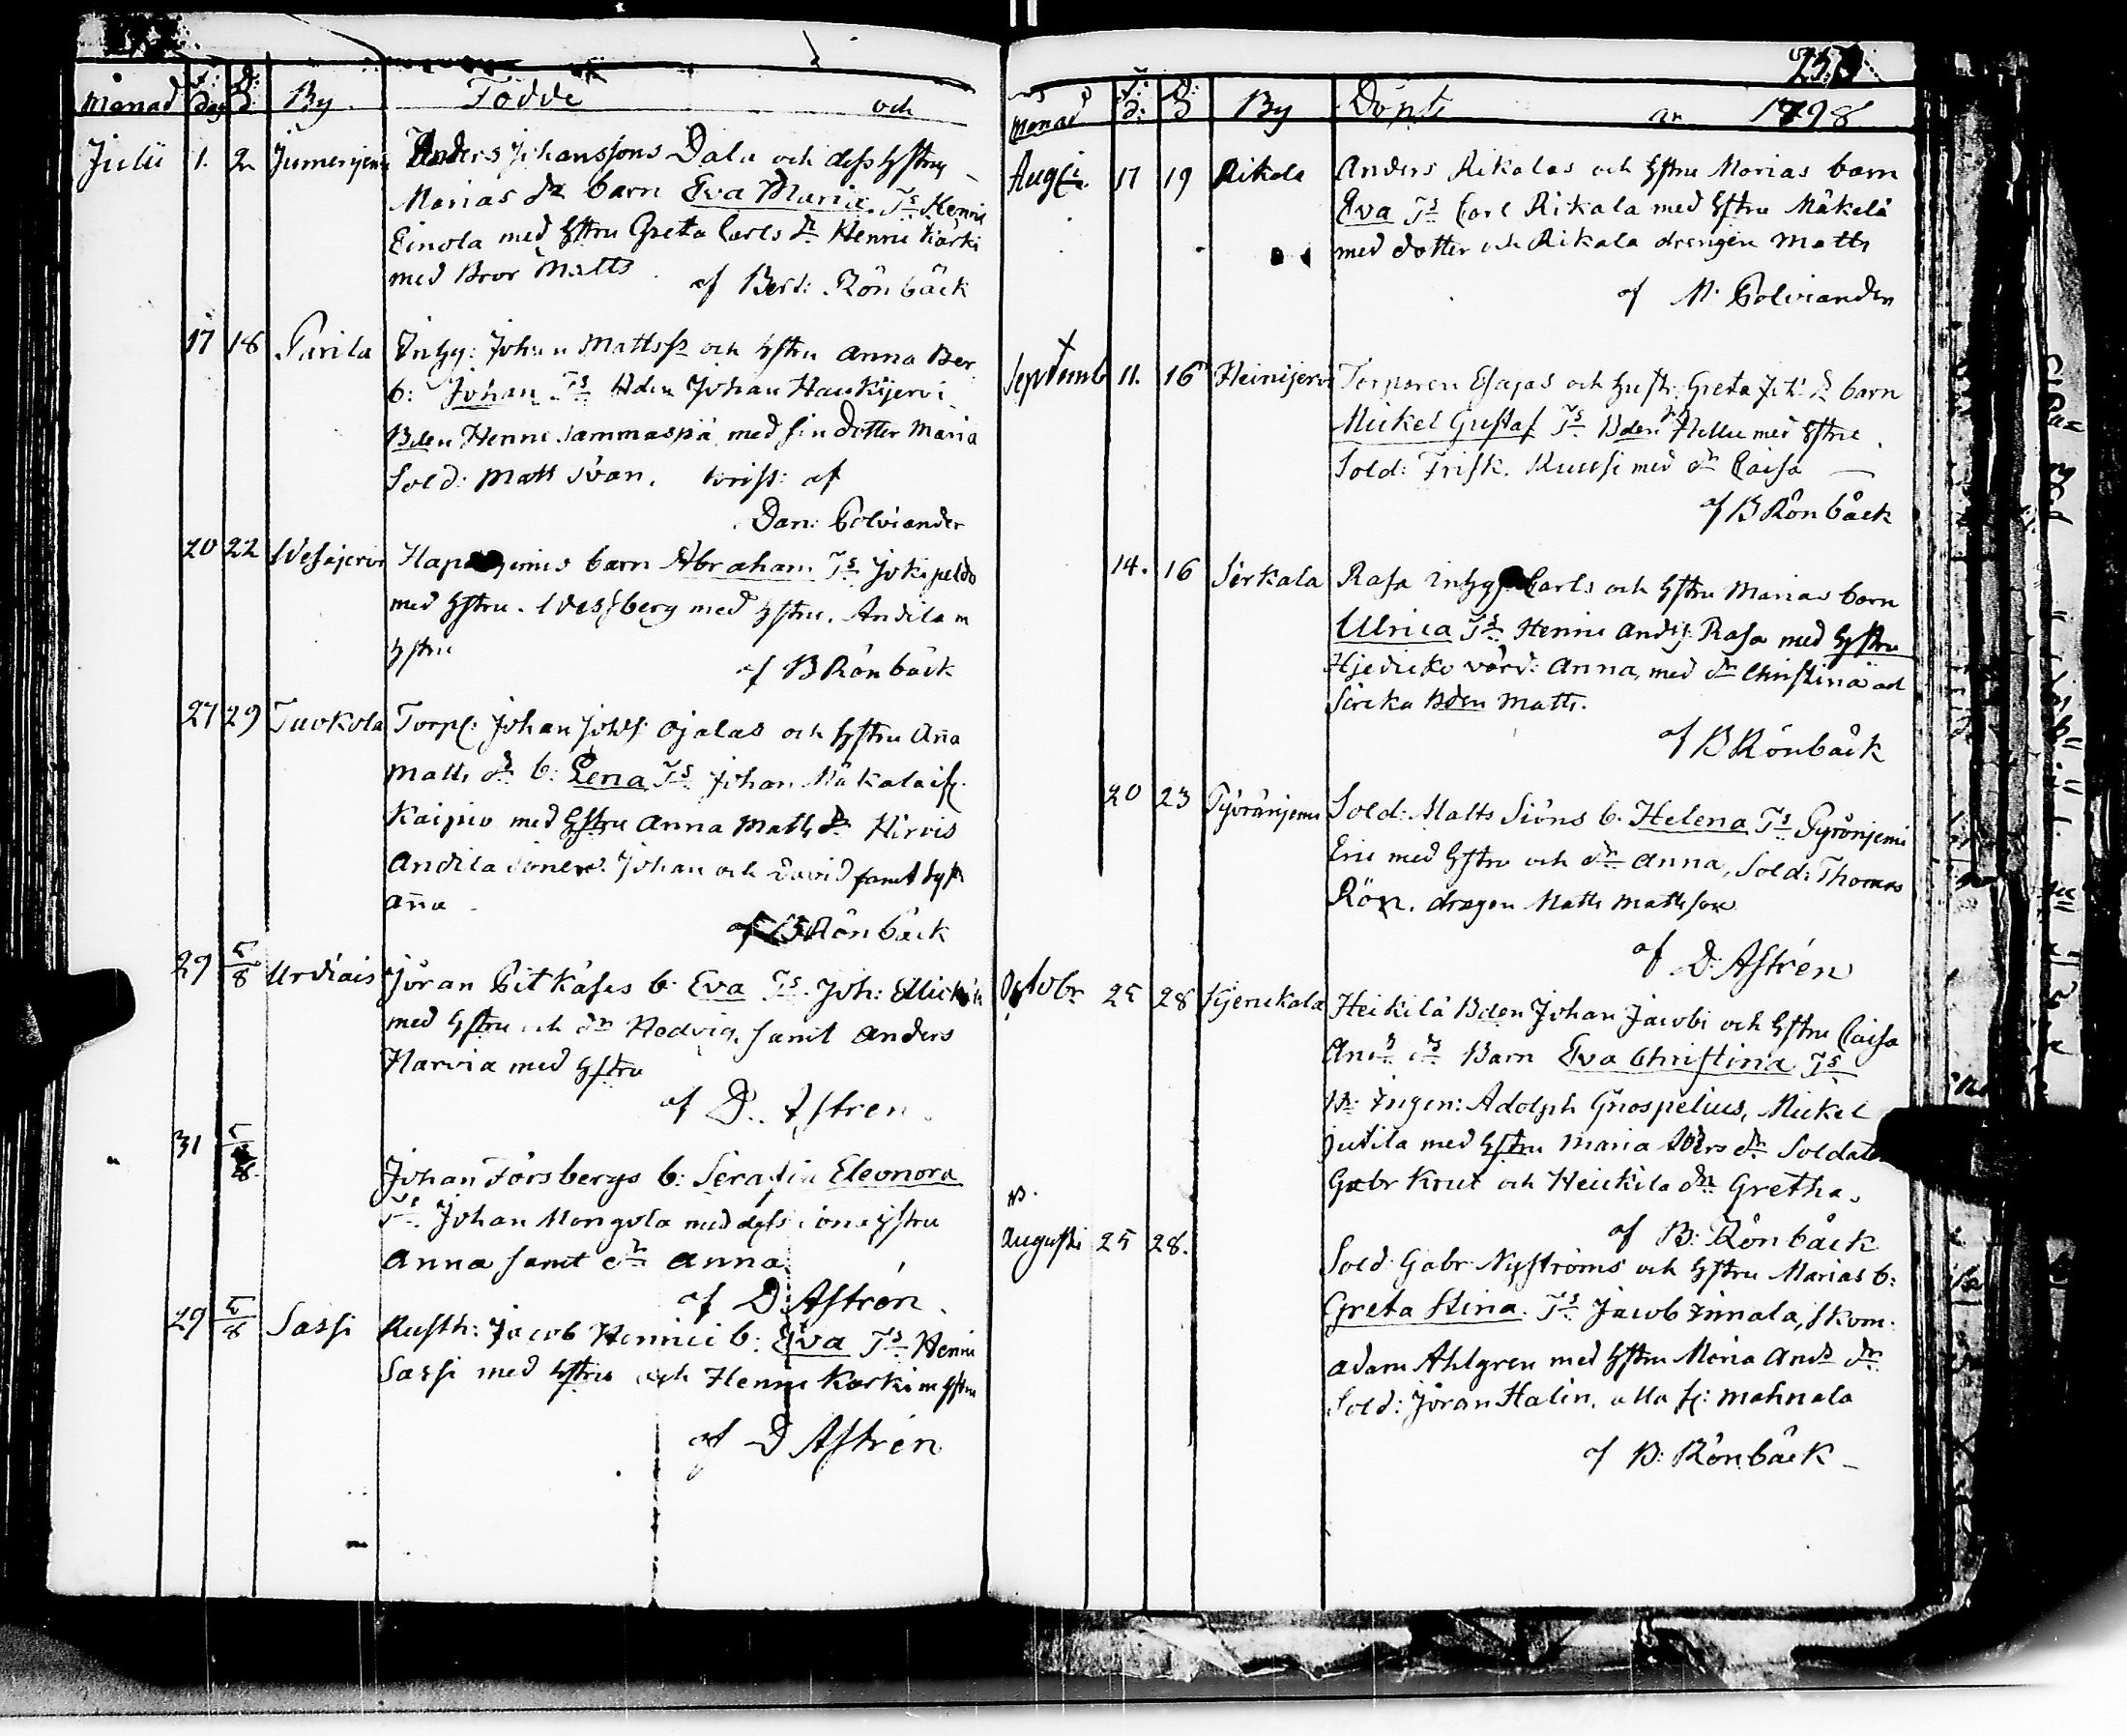 Månad F: dag D: d By Födde och
Julii 1. 2 Jumesjemi Anders Johanssons Dala och dess hstru
Marias dr barn Eva Maria. Ts Henric
Einola med hstru Greta Carls dr Henric Kärki
med Bror Matts
af Bert: Rönbäck
17 18 Parila Inhy: Johan Mattss och hstru Anna Ber
b: Johan Ts Bden Johan Haukijervi
Bden Henric Sammaspä med sin dotter Maria
Sold: Matt Svan. af
Dan: Polviander
20 22 Wesajervi barn Abraham Ts Jokipeldo
med hstru. Wessberg med hstru. Andila m
hstru
af B Rönbäck
27 29 Tuokola Torp: Johan Johss Ojalas och hstru Aña
Matts dr b: Lena Ts Johan Mäkalais
Kaipio med hstru Anna Matts dr Hirvis
Andila söner Johan och David samt hst
aña
af B Rönbäck
29 5/8 Urdiais Jöran Pitkäses b. Eva Ts. Joh:
med hstru och dr Hedvig, samt Anders
Harvia med hstru
af D. Astren.
31 5/8.
Johan Forsbergs b: Serafia Eleonora
Ts. Johan Mongola med dess sone hstru
Anna samt dr Anna
af D: Astrén.
29 5/8 Sassi Rusth: Jacob Henrici b: Eva Ts Henric
Sassi med hstru och Henric Korki m hstru
af D Astrén
257
Månad F: d: D: d By Döpte år 1798
Augti. 17 19 Rikala Anders Rikalas och hstru Marias barn
Eva Ts Carl Rikala med hstru Mäkelä
med dotter och Rikala drengen Matts
af M. Polviander
Septemb 11. 16 Heinijervi Torparen Esajas och hustr: Greta Joh: dr barn
Mickel Gustaf Ts. Bden Hellu med hstru
Sold: Frisk. Kuusi med dr Caisa
af B Rönbäck
14. 16 Sirkala Rasa inhys Carls och hstru Marias barn
Ulrica Ts Henric Andss: Rasa med hstru
värd: Anna, med dr Christina
Sireka Bden Matts.
af B Rönbäck
20 23 Pyöränjemi Sold: Matts Siöns b. Helena Ts Pyrönjemi
Eric med hstru och dr Anna, Sold: Thomas
Rön. drägen Matts Mattsson
af D: Astrén
Octobr 25 28 Kjenikala Heikilä Bden Johan Jacobi och hstru Caisa
And: dr Barn Eva Christina Ts
Hr Ingen: Adolph Gnospelius, Mickel
Jutila med hstru Maria dr Soldaten
Gabr Knut och Heikila dr Gretha.
af B: Rönbäck
Augusti 25 28. Sold Gabr Nyströms och hstru Marias b:
Greta Stina. Ts Jacob Finnala, Skom:
Adam Ahlgren med hstru Maria Ands dr
Sold: Jöran Halin. alla fr: Mahnala
af B: Rönbäck